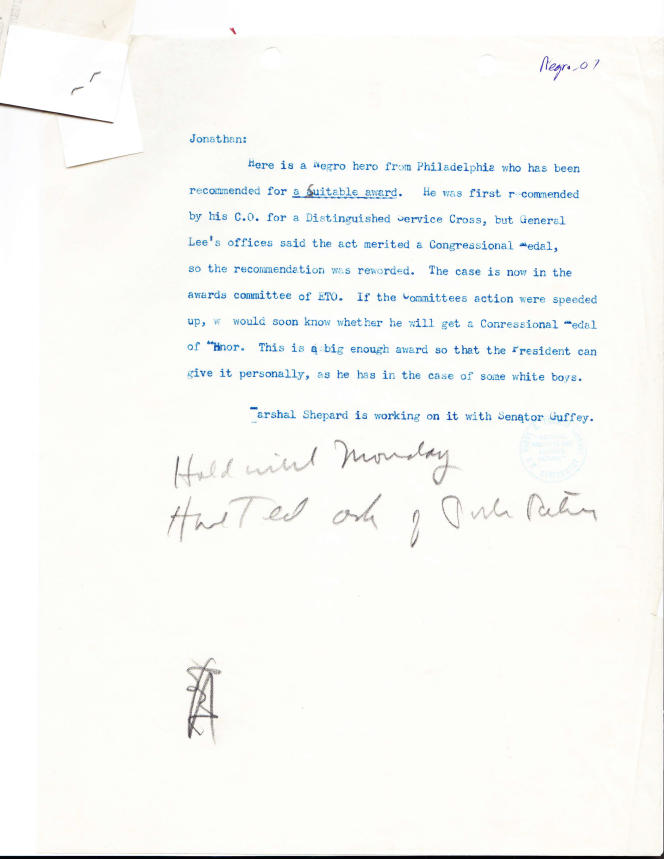 Jonathan:
Here is a Negro hero from Philadelphia who has been
recommended for a suitable award. He was first r commended
by his C.O. for a Distinguished Service Cross, but General
Lee's offices said the act merited a Congressional Medal,
so the recommendation was reworded. The case is now in the
awards committee of ETO. If the Committees action were speeded
up, w would soon know whether he will get a Conressional Medal
of Hnor. This is a big enough award so that the President can
give it personally, as he has in the case of some white boys.
Marshal Shepard is working on it with Senator Guffey.
Hold until Monday
Have Ted ask